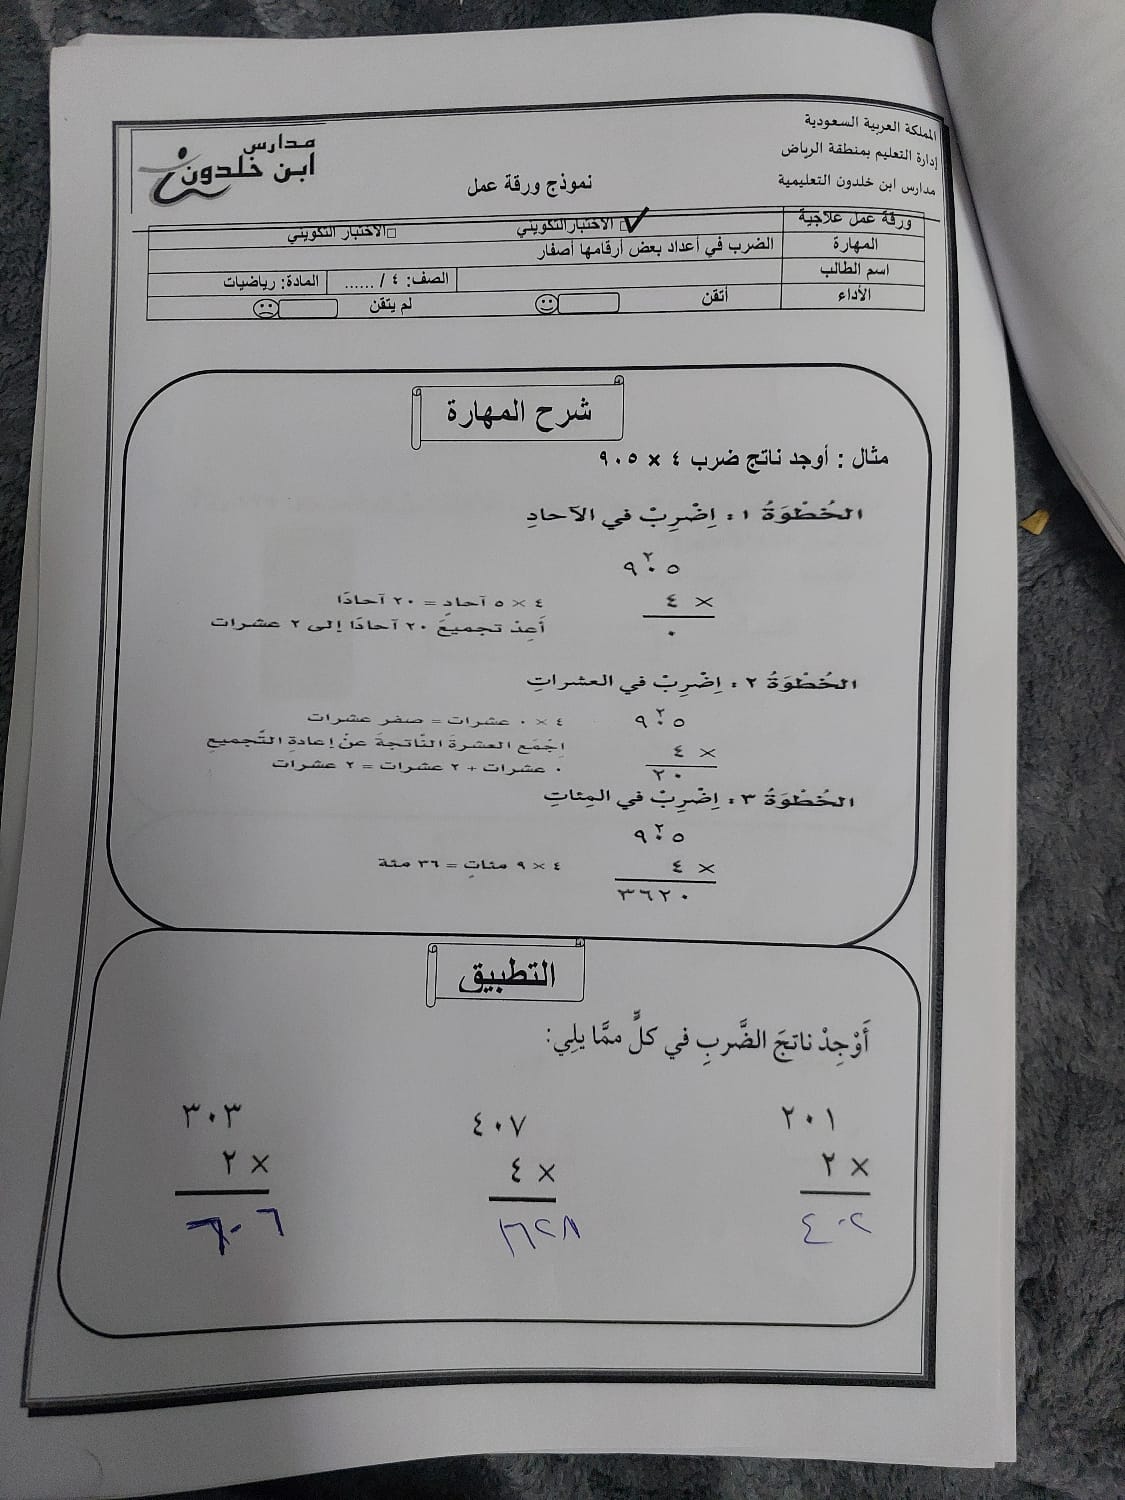 المملكة العربية السعودية
إدارة التعليم بمنطقة الرياض
مدارس ابن خلدون التعليمية
نموذج ورقة عمل
مدارس
ابن خلدون
ورقة عمل علاجية □ الاختبار التكويني □ الاختبار التكويني
المهارة الضرب في أعداد بعض أرقامها أصفار
اسم الطالب الصف: ٤ / ...... المادة: رياضيات
الأداء أتقن لم يتقن
شرح المهارة
مثال : أوجد ناتج ضرب ٤ × ٩٠٥
الخُطْوَةُ ١ : اِضْرِبْ في الآحادِ
٢
٩٠٥
× ٤
٤ × ٥ آحادٍ = ٢٠ آحادًا
أَعِدْ تجميعَ ٢٠ آحادًا إلى ٢ عشرات
٠
الخُطْوَةُ ٢ : اِضْرِبْ في العشراتِ
٢
٩٠٥
٤ × ٠ عشرات = صفر عشرات
× ٤
اِجْمَعِ العشرةَ النّاتجةَ عنْ إعادةِ التّجميعِ
٠ عشرات + ٢ عشرات = ٢ عشرات
٢٠
الخُطْوَةُ ٣ : اِضْرِبْ في المِئاتِ
٢
٩٠٥
× ٤
٤ × ٩ مئاتٍ = ٣٦ مئة
٣٦٢٠
التطبيق
أَوْجِدْ ناتجَ الضَّربِ في كلٍّ ممَّا يلِي:
٢٠١
× ٢
٤٠٢
٤٠٧
× ٤
١٦٢٨
٣٠٣
× ٢
٦٠٦